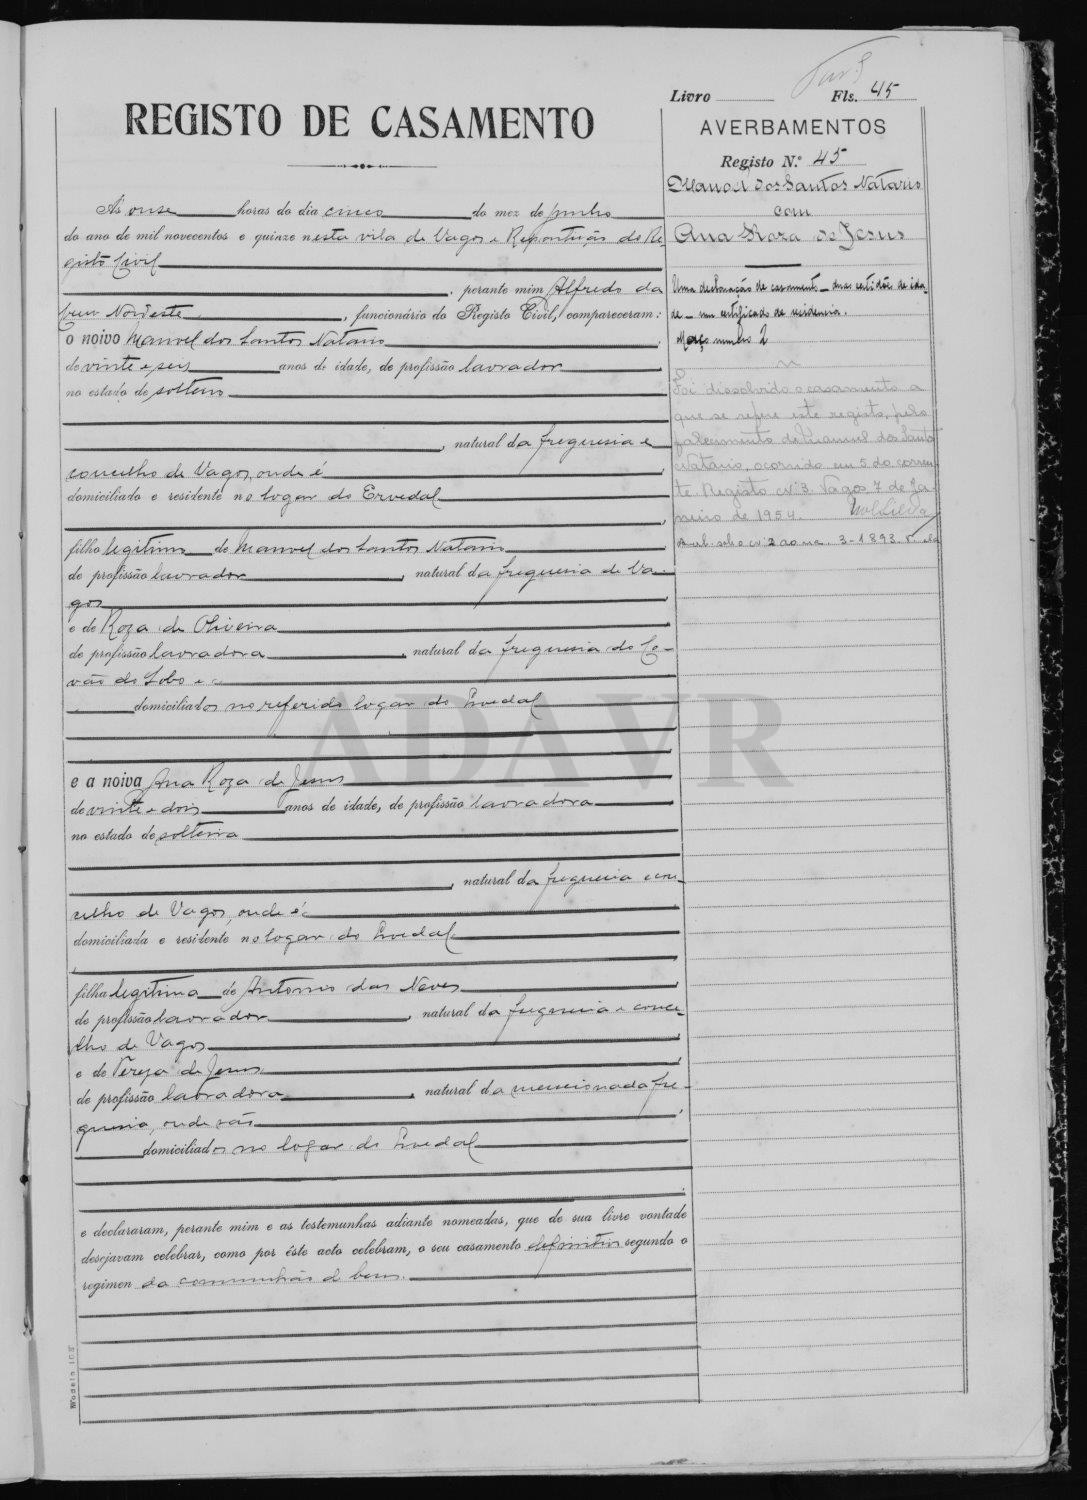 Livro Fls. 45
REGISTO DE CASAMENTO
AVERBAMENTOS
Registo N.º 45
Manoel dos Santos Natario
com
Ana Roza de Jesus
Uma declaração de casamento - duas certidões de ida-
de - um certificado de residencia.
Março numero 2
Foi dissolvido o casamento a
que se refere este registo, pelo
falecimento de Manuel dos Santos
Natario, ocorrido em 5 do corren-
te. Registo Nº 3. Vagos 7 de Ja-
neiro de 1954.
Ás onse horas do dia cinco do mez de junho
do ano de mil novecentos e quinze nesta vila de Vagos e Repartição do Re-
gisto Civil
, perante mim Alfredo da
Noreste, funcionário do Registo Civil, compareceram:
o noivo Manoel dos Santos Natario
de vinte e seis anos de idade, de profissão lavrador
no estado de solteiro
, natural da freguesia e
concelho de Vagos, onde é
domiciliado e residente no logar do Ervedal
filho legitimo de Manoel dos Santos Natario
de profissão lavrador, natural da freguesia de Va-
gos
e de Roza de Oliveira
de profissão lavradora, natural da freguesia do Co-
vão do Lobo e
domiciliados no referido logar do Ervedal
e a noiva Ana Roza de Jesus
de vinte e dois anos de idade, de profissão lavradora
no estado de solteira
, natural da freguesia e con-
celho de Vagos, onde é
domiciliada e residente no logar do Ervedal
filha legitima de Antonio das Neves
de profissão lavrador, natural da freguesia e conce-
lho de Vagos
e de Tereza de Jesus
de profissão lavradora, natural da mencionada fre-
guesia, onde são
domiciliados no logar do Ervedal
e declararam, perante mim e as testemunhas adiante nomeadas, que de sua livre vontade
desejavam celebrar, como por éste acto celebram, o seu casamento definitivo segundo o
regimen da comunhão de bens.
ADAVR